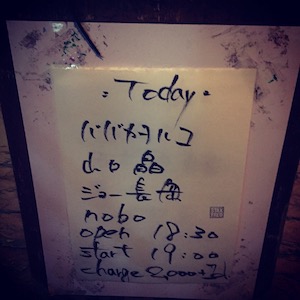 Today
ババカヲルコ
d.o 晶
ジョー長岡
nobo
open 18:30
start 19:00
charge 2,000+d